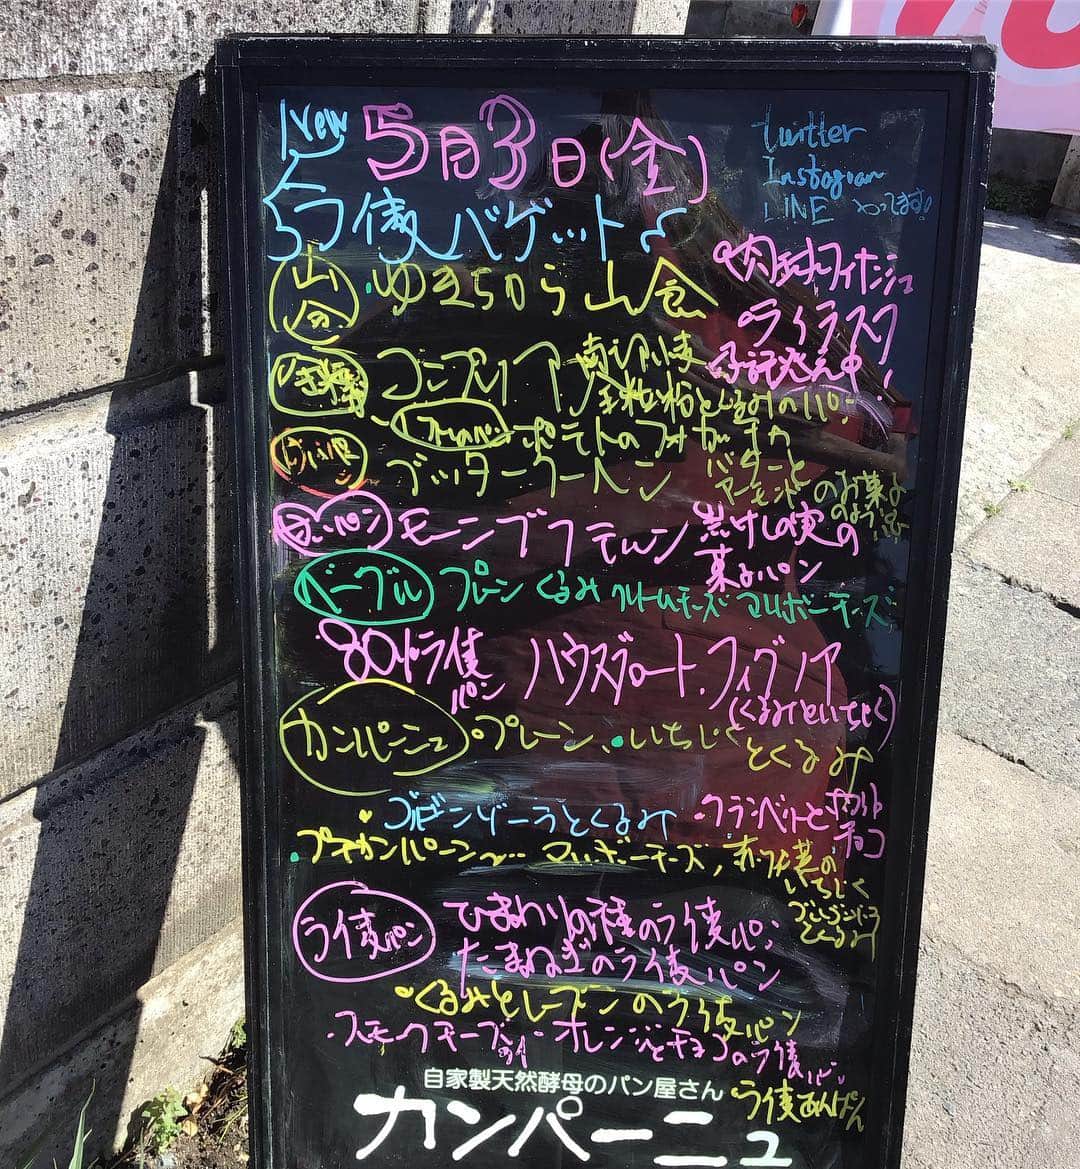 New 5月3日(金)
twitter
Instagram
LINE やってます!
ラ麦バゲット
山食 ・ゆきちから山食
フィナンシェ
・ライラスク
コンプリ
全粒粉とくるみのパン
ポテトのフォカッチャ
ブッタークーヘン バターと
アーモンドのお菓子
のような
白いパン モーンプフテルン 黒けしの実の
菓子パン
ベーグル プレーン くるみ クリームチーズ マリボーチーズ
80%ライ麦
パン ハウスブロート、フィグノア
(くるみといちじく)
カンパーニュ ・プレーン、・いちじく
とくるみ
ゴルゴンゾーラとくるみ ・クランベリーとホワイト
チョコ
・プチカンパーニュ マリボーチーズ,赤ワイン煮の
いちじく
ゴルゴンゾーラ
とくるみ
ライ麦パン ひまわりの種のライ麦パン
たまねぎのライ麦パン
・くるみとレーズンのライ麦パン
・スモークチーズ ・オレンジとチョコのライ麦パン
・ライ麦あんぱん
自家製天然酵母のパン屋さん
カンパーニュ